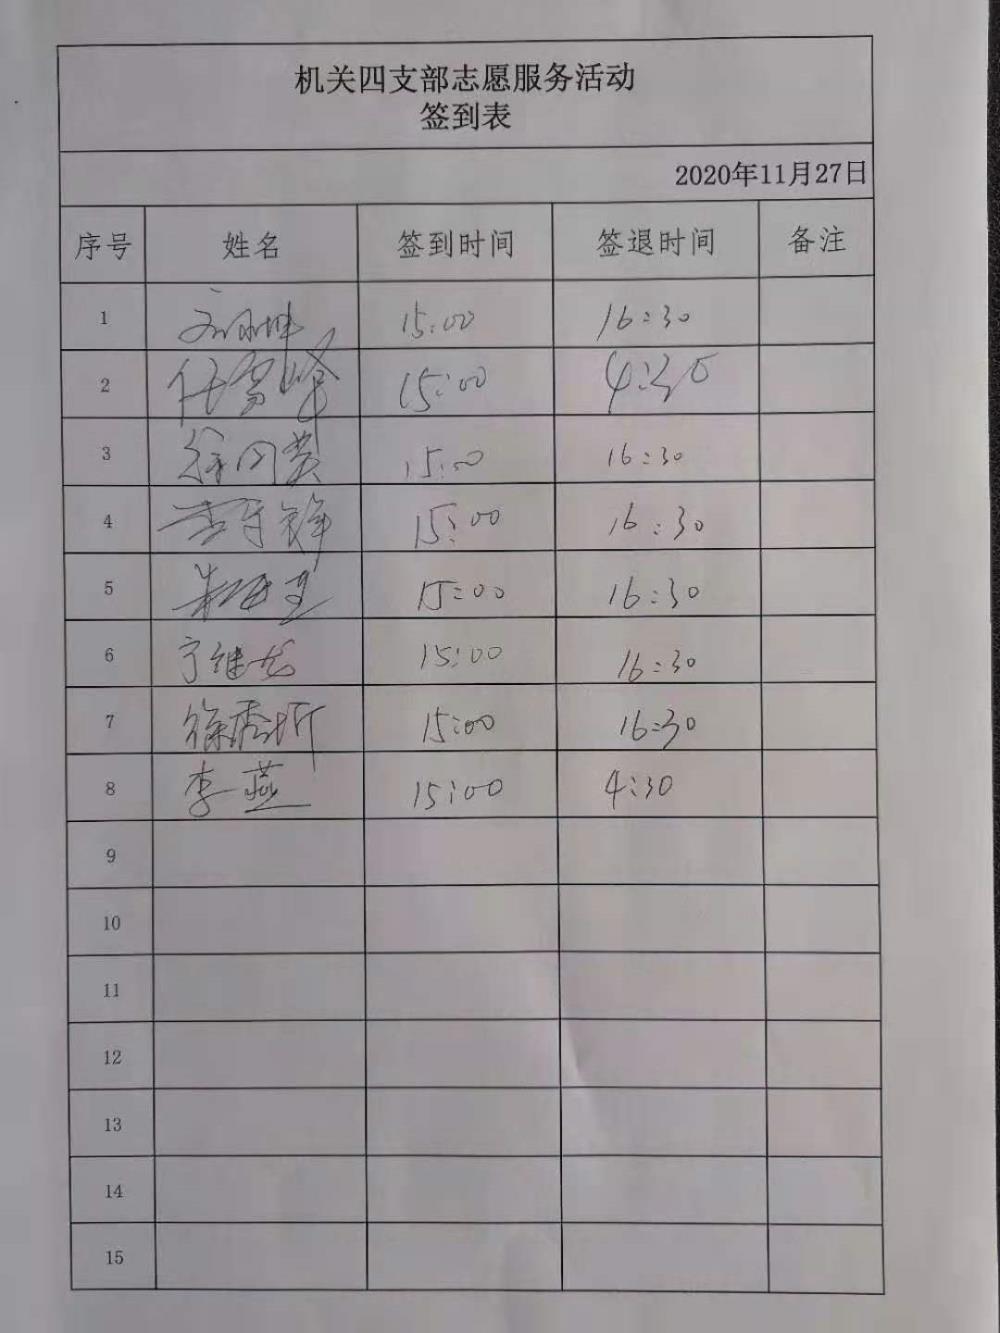 机关四支部志愿服务活动
签到表
2020年11月27日
序号 姓名 签到时间 签退时间 备注
1 15:00 16:30
2 15:00 4:30
3 15:00 16:30
4 15:00 16:30
5 15:00 16:30
6 15:00 16:30
7 徐 15:00 16:30
8 李燕 15:00 4:30
9
10
11
12
13
14
15